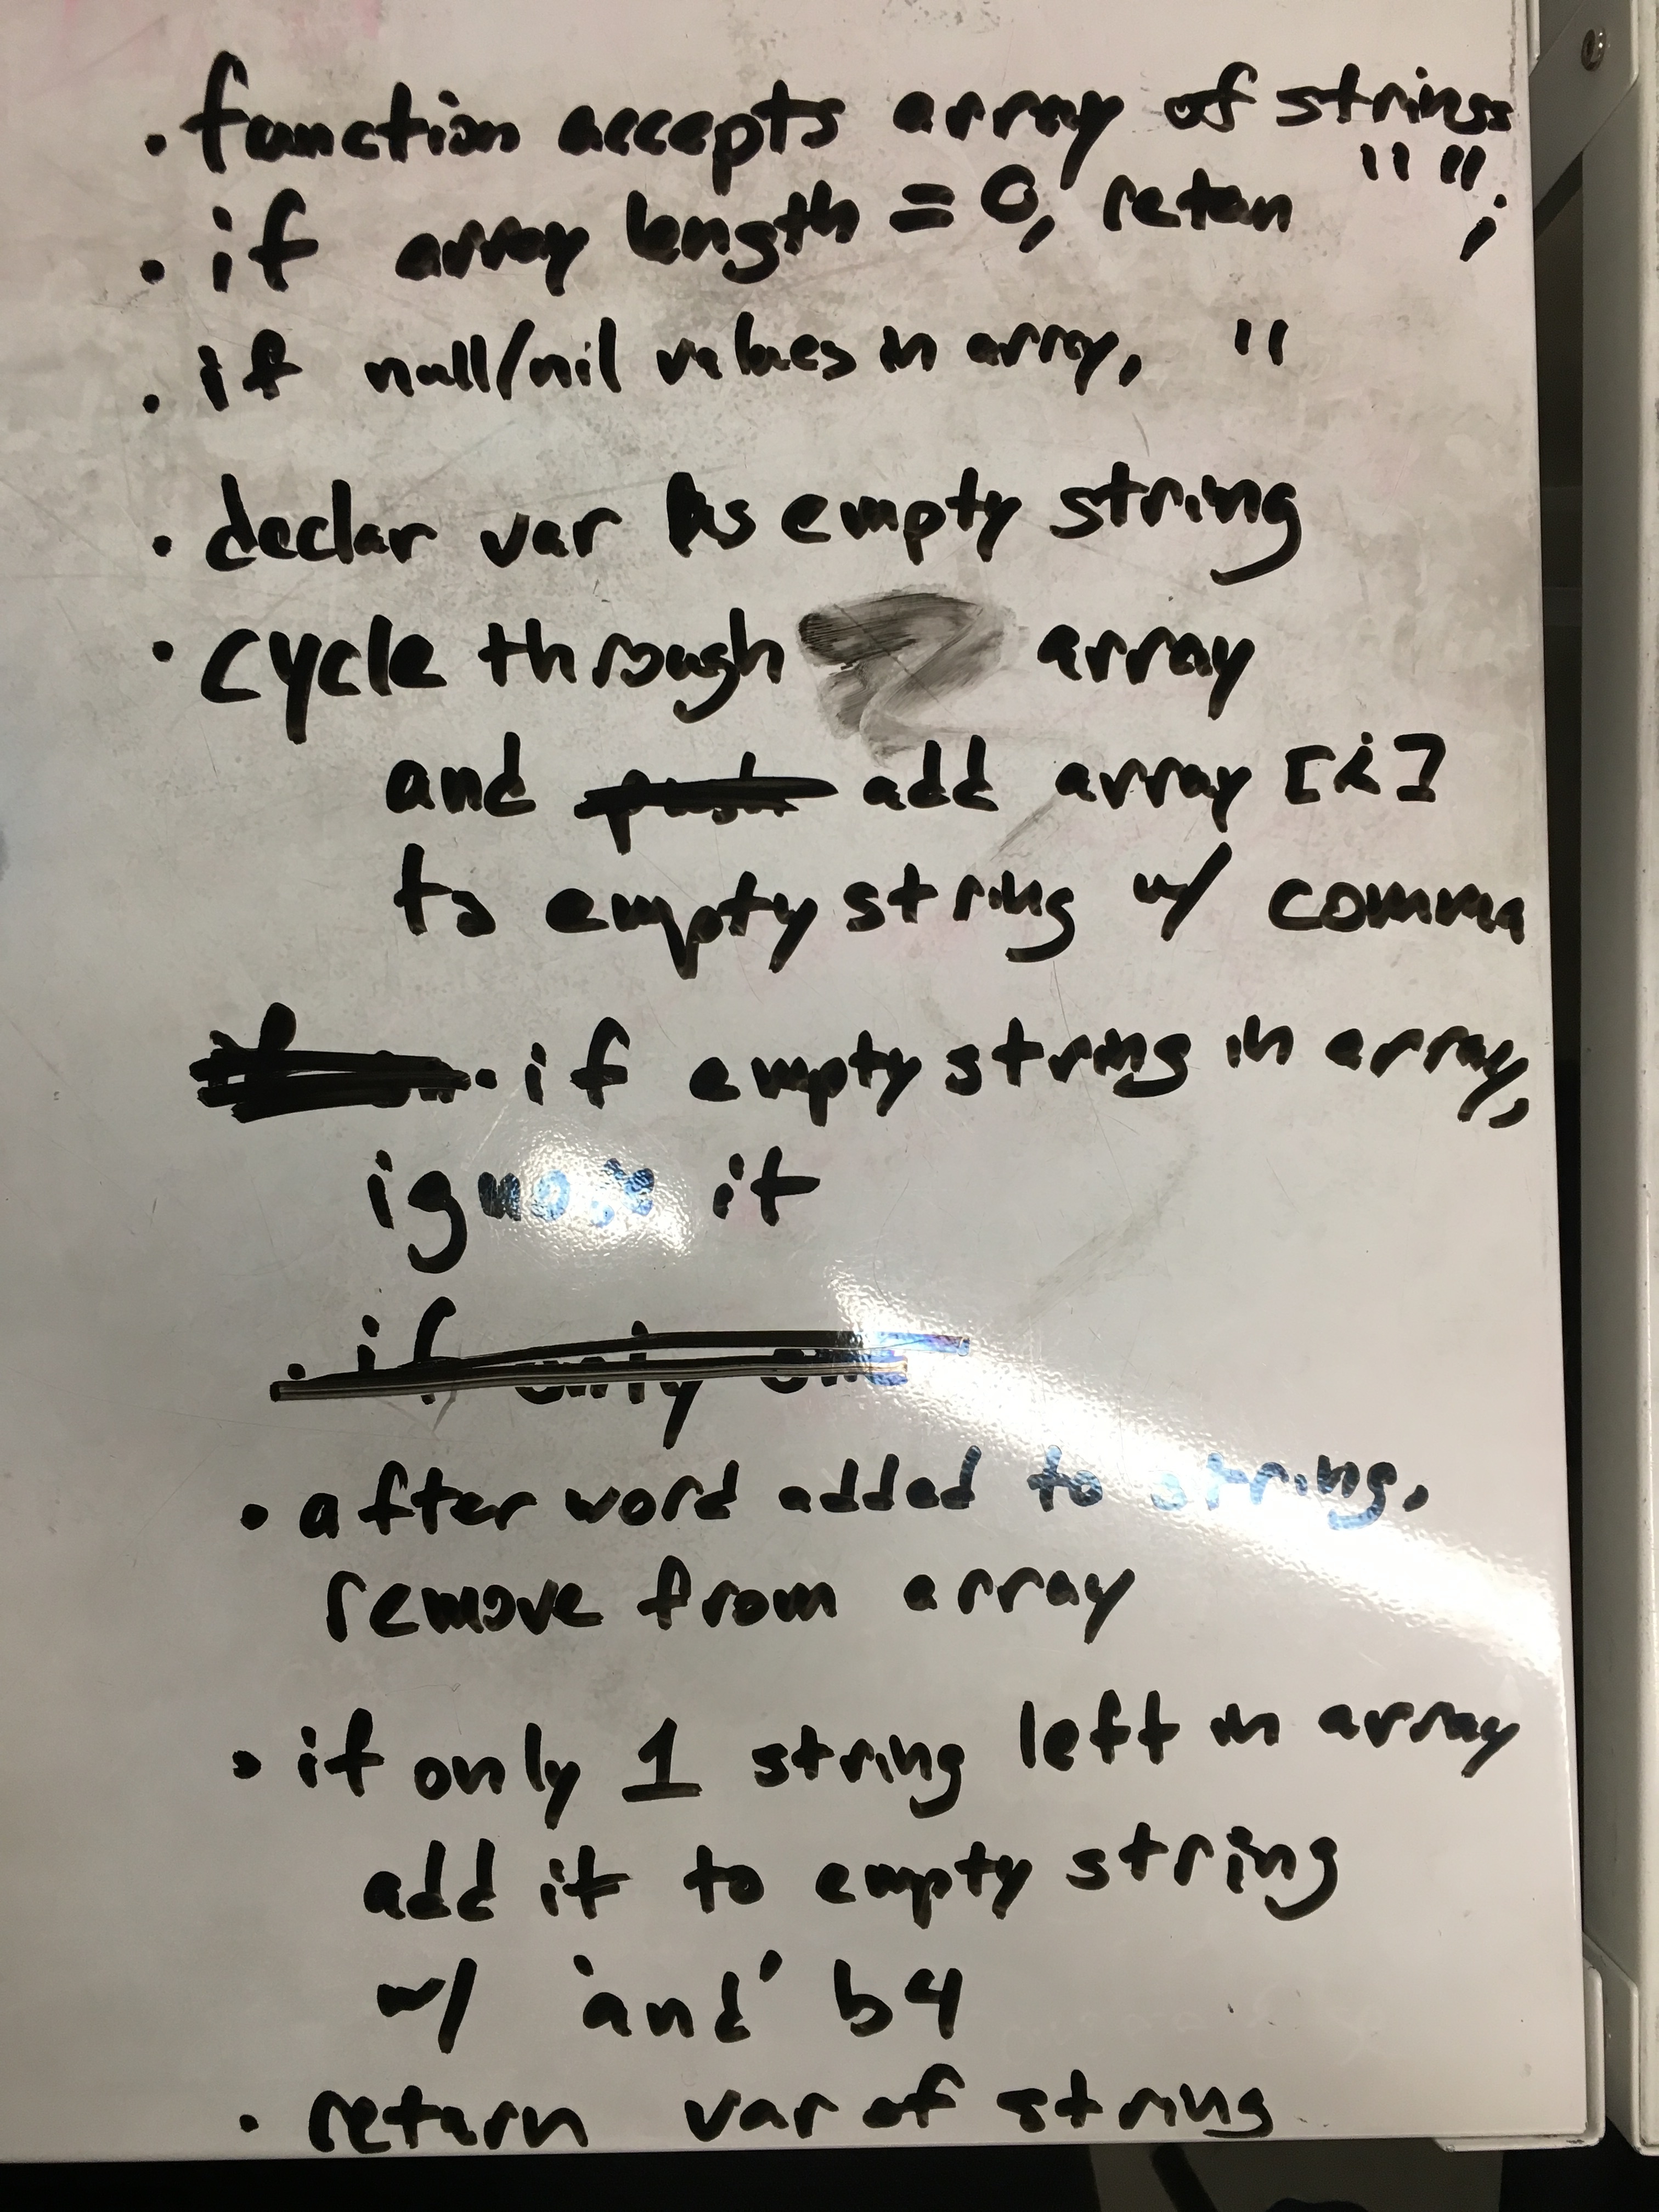 · function accepts array of strings
· if array length = 0, return " ";
· if null/nil values in array, "
· declar var as empty string
· cycle through array
and push add array [i]
to empty string w/ comma
· if empty string in array,
ignore it
· if only one
· after word added to string,
remove from array
· if only 1 string left in array
add it to empty string
w/ 'and' b4
· return var of string